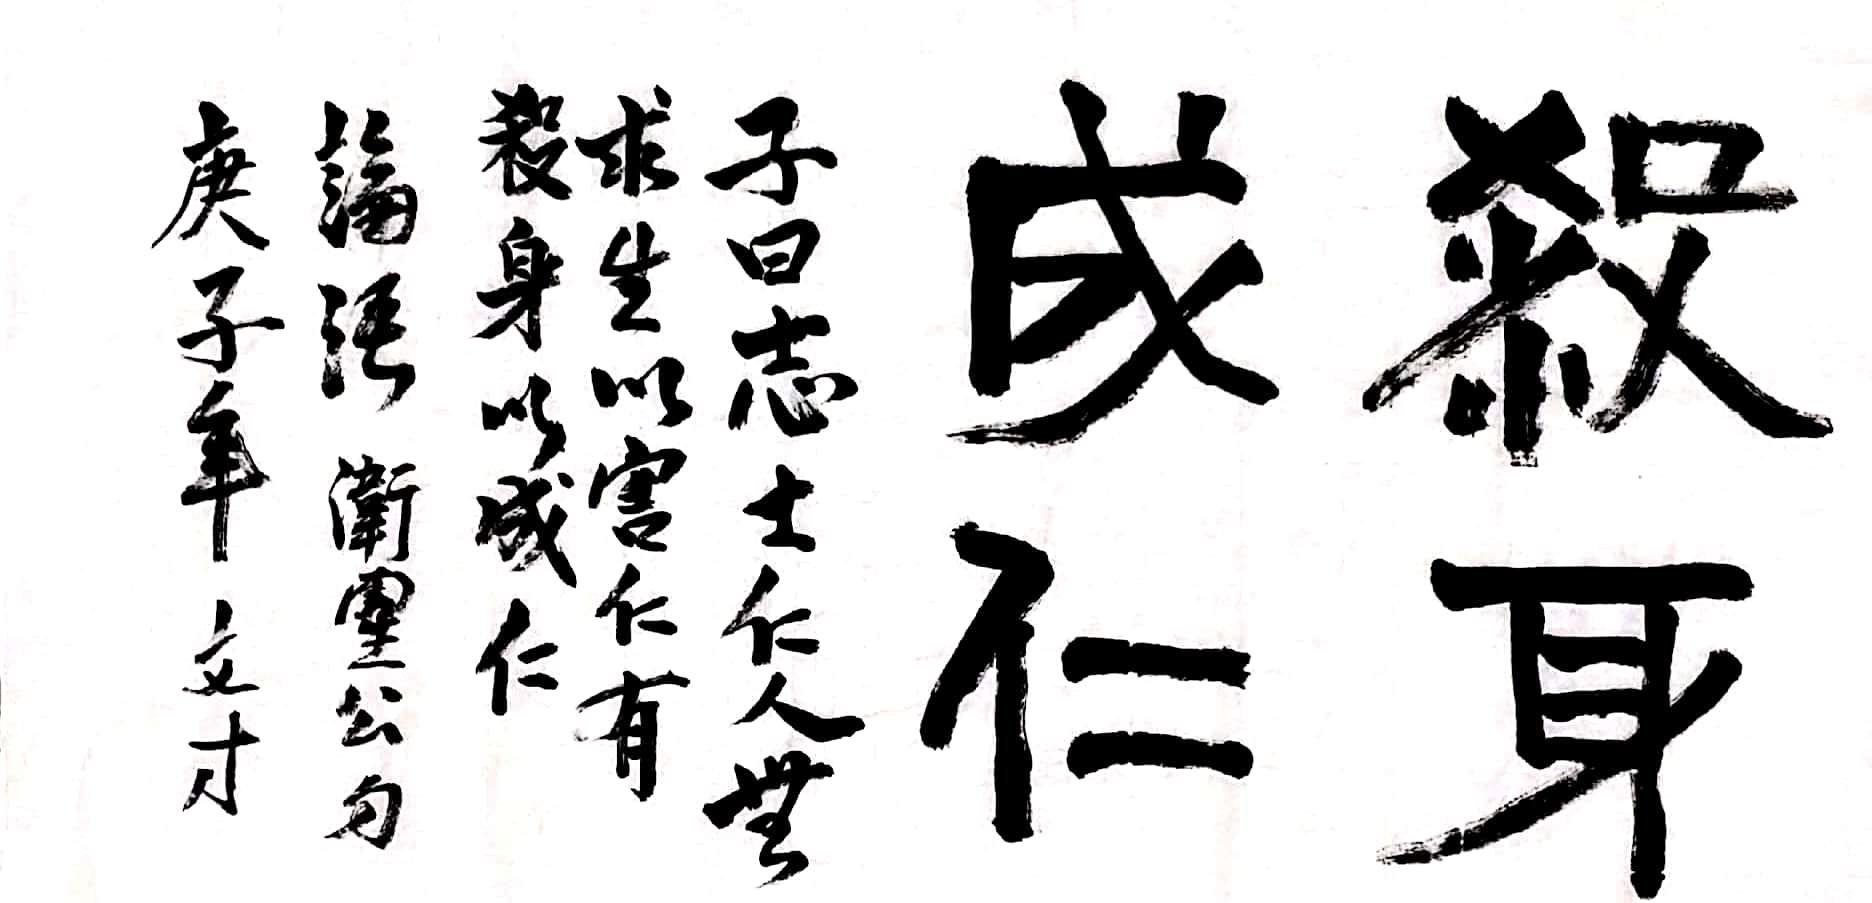 殺身
成仁
子曰志士仁人無
求生以害仁有
殺身以成仁
論語 衛靈公句
庚子年 文才